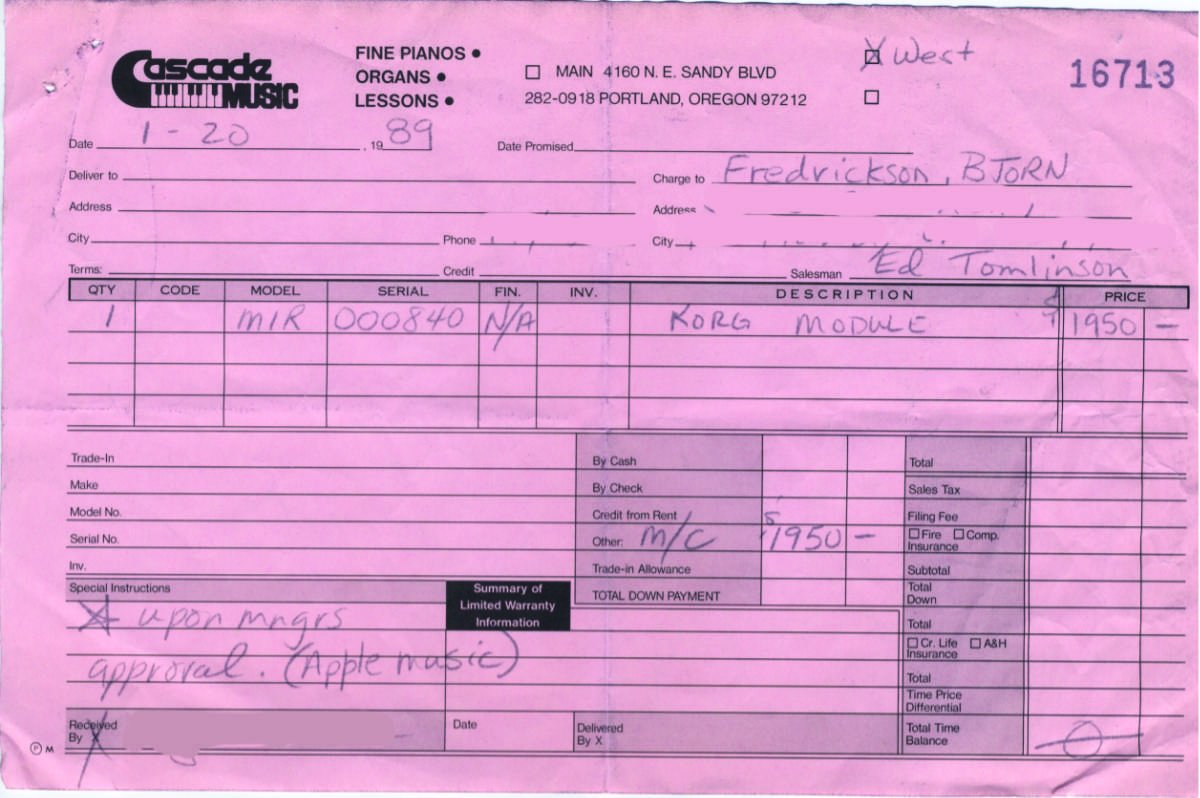 Cascade MUSIC
FINE PIANOS •
ORGANS •
LESSONS •
☐ MAIN 4160 N. E. SANDY BLVD
282-0918 PORTLAND, OREGON 97212
☒ West
☐
16713
Date 1-20, 19 89
Date Promised
Deliver to
Charge to Fredrickson, BJORN
Address
Address
City Phone City
Terms: Credit Salesman Ed Tomlinson
QTY CODE MODEL SERIAL FIN. INV. DESCRIPTION PRICE
1 M1R 000840 N/A KORG MODULE $1950 –
Trade-In
Make
Model No.
Serial No.
Inv.
By Cash
By Check
Credit from Rent
Other: M/C $1950 –
Trade-in Allowance
TOTAL DOWN PAYMENT
Total
Sales Tax
Filing Fee
☐ Fire ☐ Comp.
Insurance
Subtotal
Total
Down
Total
☐ Cr. Life ☐ A&H
Insurance
Total
Time Price
Differential
Total Time
Balance 0
Special Instructions
Summary of
Limited Warranty
Information
☆ upon mngrs
approval. (Apple music)
Received
By X
Date
Delivered
By X
P M